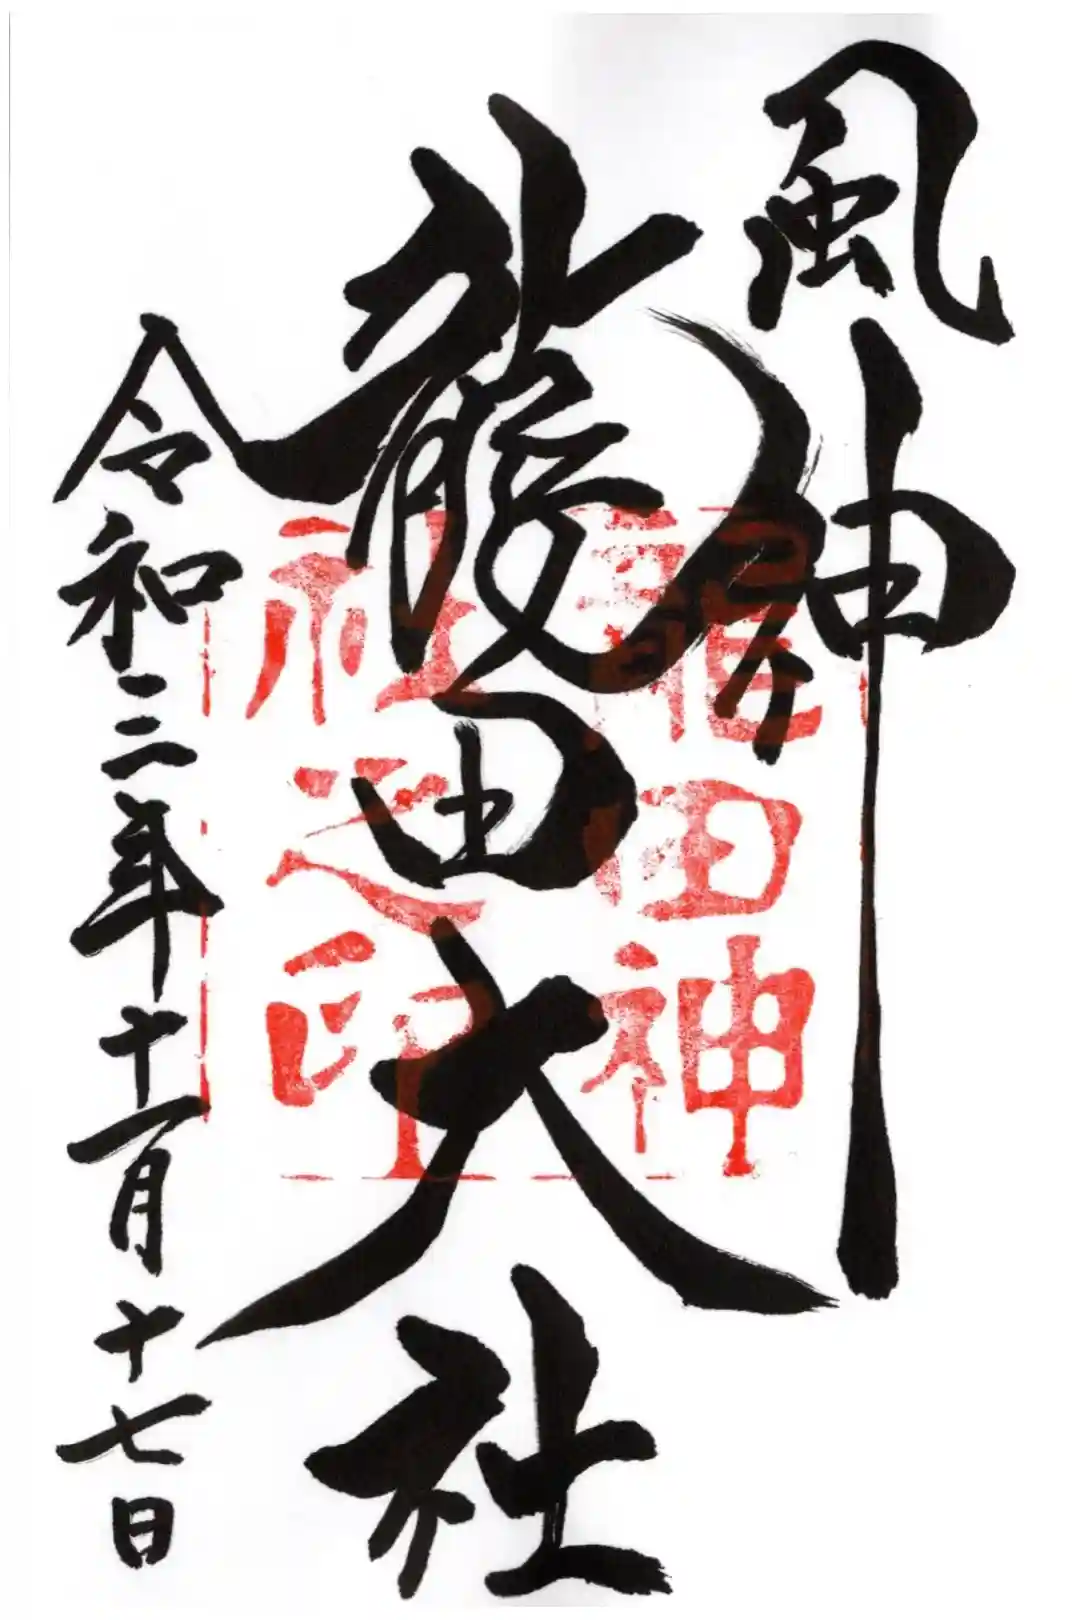 風神
龍田大社
令和三年十一月十七日
龍田神
社之印